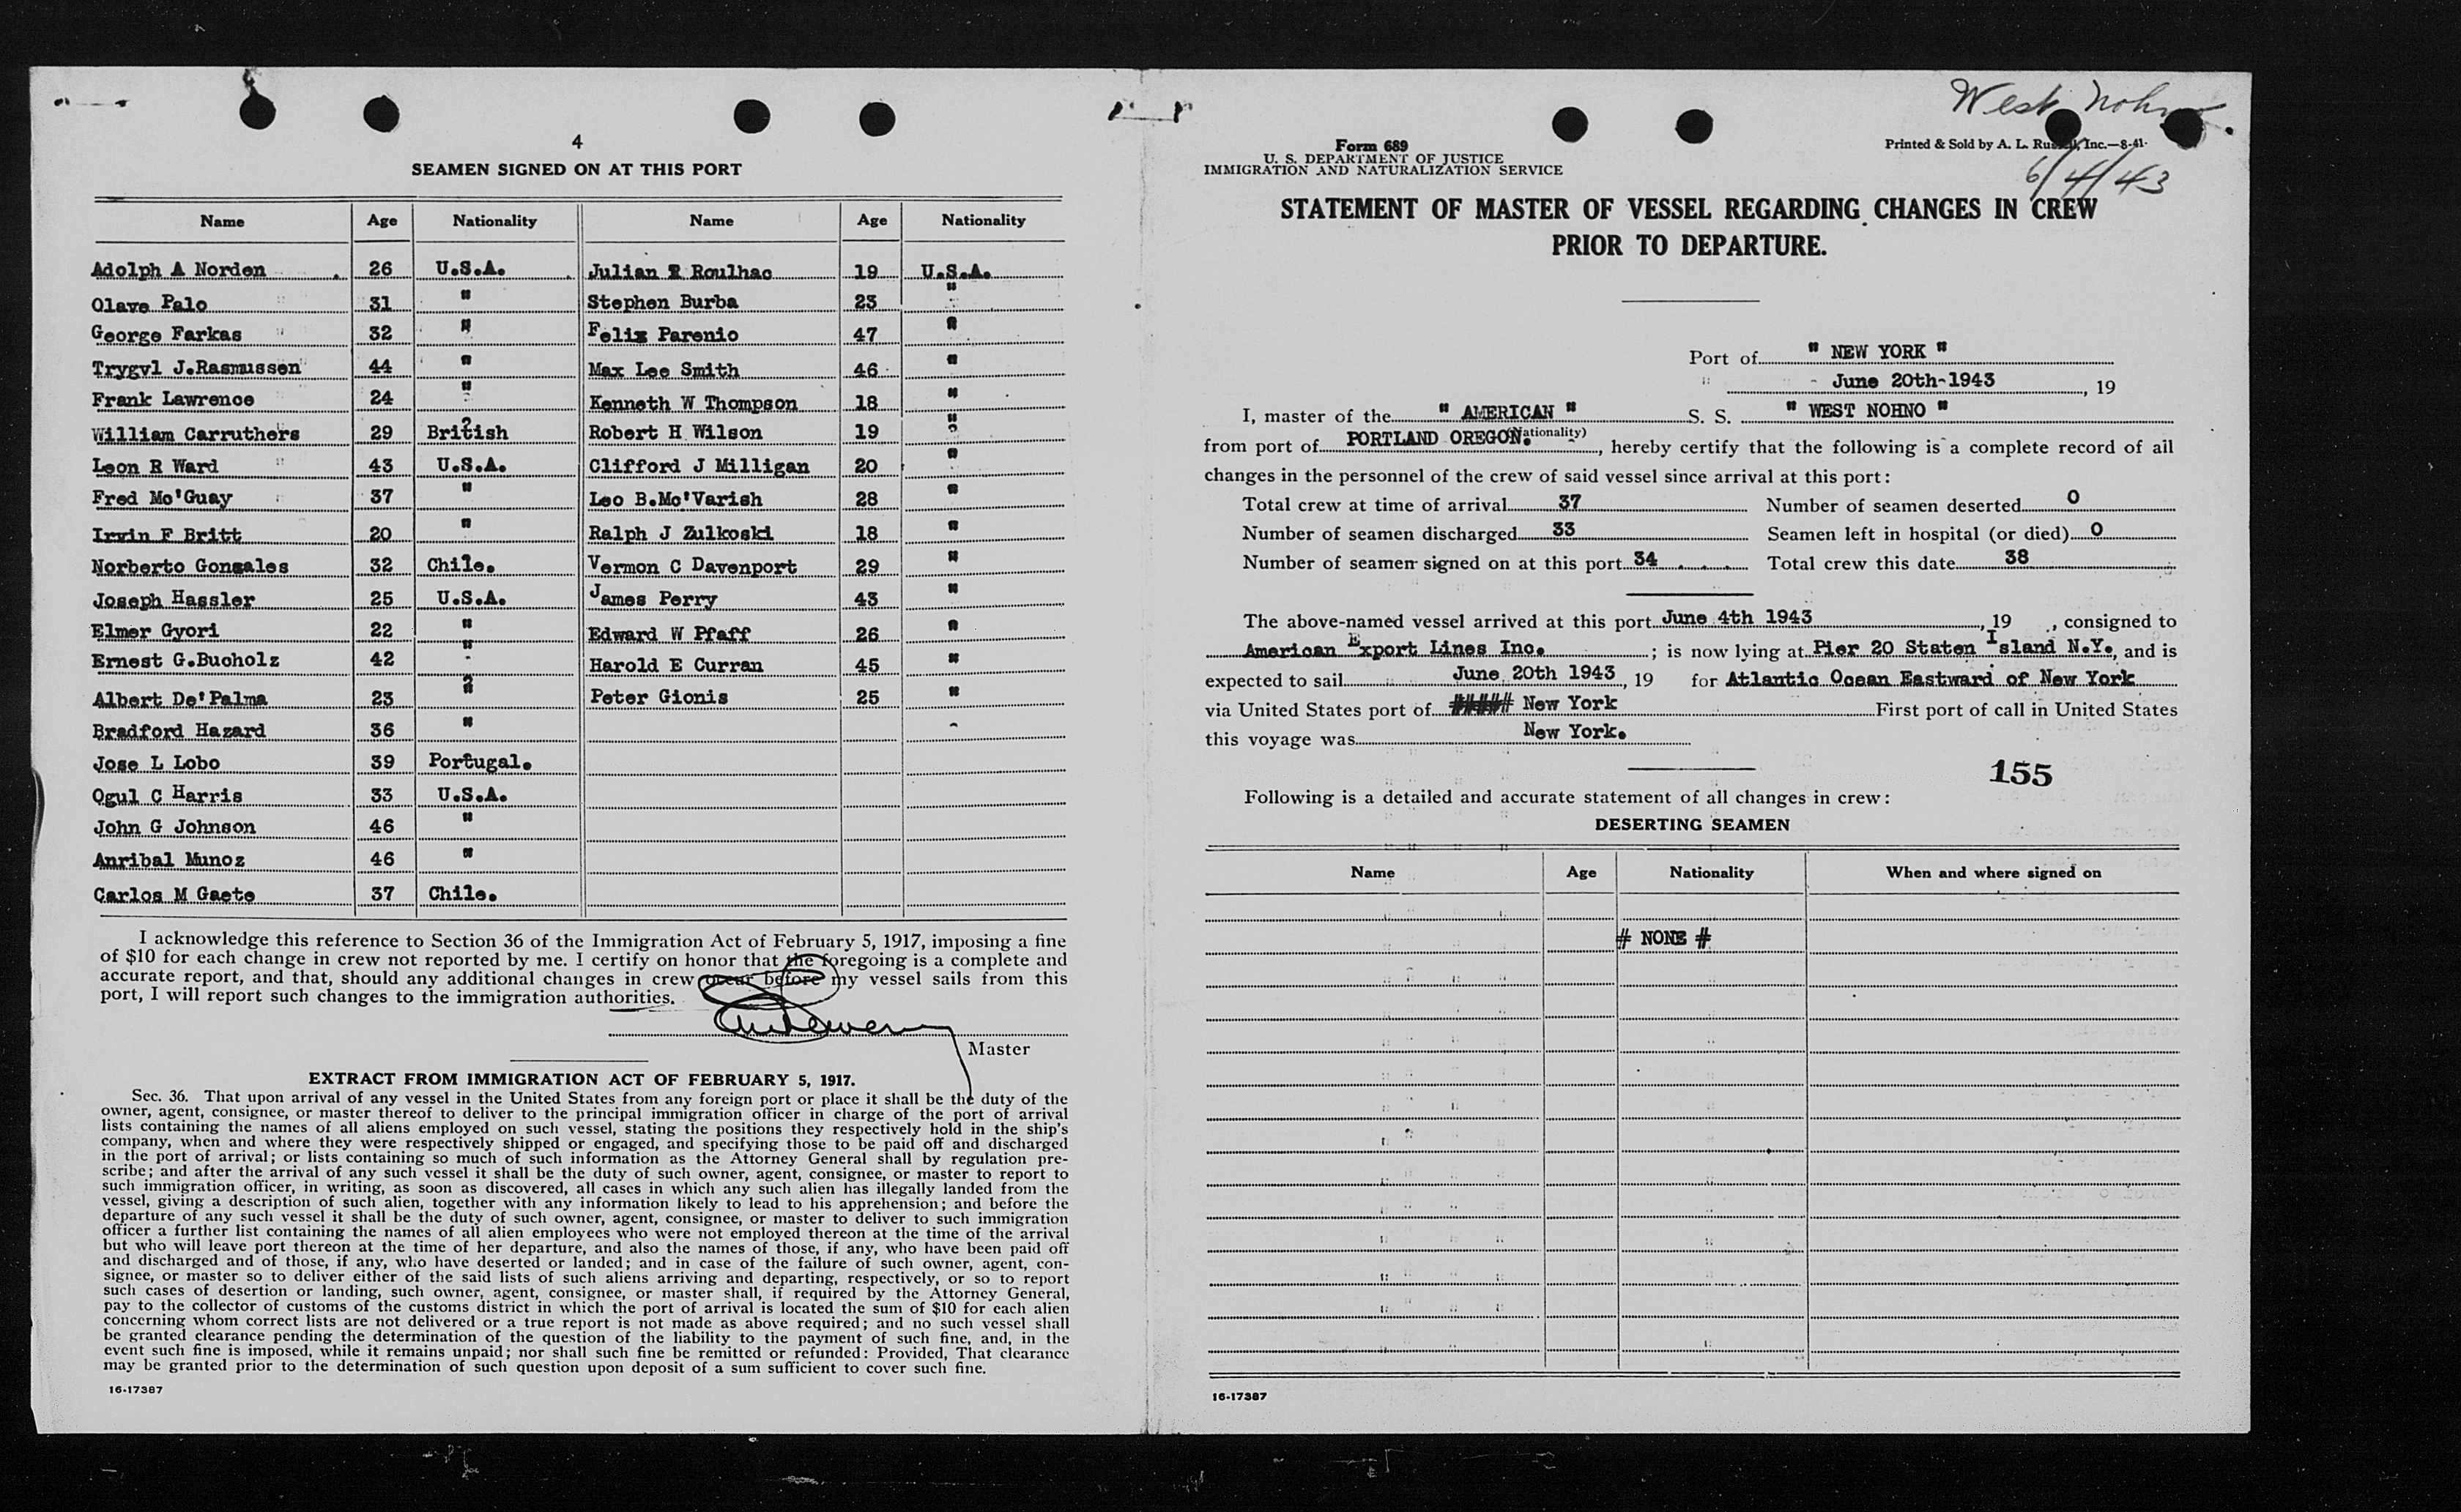 4
SEAMEN SIGNED ON AT THIS PORT
Name Age Nationality Name Age Nationality
Adolph A Norden 26 U.S.A. Julian R Roulhac 19 U.S.A.
Olave Palo 31 " Stephen Burba 23 "
George Farkas 32 " Felix Parenio 47 "
Trygvl J.Rasmussen 44 " Max Lee Smith 46 "
Frank Lawrence 24 " Kenneth W Thompson 18 "
William Carruthers 29 British Robert H Wilson 19 "
Leon R Ward 43 U.S.A. Clifford J Milligan 20 "
Fred Mc'Guay 37 " Leo B.Mc'Varish 28 "
Irwin F Britt 20 " Ralph J Zulkoski 18 "
Norberto Gonzales 32 Chile. Vermon C Davenport 29 "
Joseph Hassler 25 U.S.A. James Perry 43 "
Elmer Gyori 22 " Edward W Pfaff 26 "
Ernest G.Bucholz 42 " Harold E Curran 45 "
Albert De'Palma 23 " Peter Gionis 25 "
Bradford Hazard 36 "
Jose L Lobo 39 Portugal.
Ogul C Harris 33 U.S.A.
John G Johnson 46 "
Anribal Munoz 46 "
Carlos M Gaete 37 Chile.
I acknowledge this reference to Section 36 of the Immigration Act of February 5, 1917, imposing a fine
of $10 for each change in crew not reported by me. I certify on honor that the foregoing is a complete and
accurate report, and that, should any additional changes in crew occur before my vessel sails from this
port, I will report such changes to the immigration authorities.
Master
EXTRACT FROM IMMIGRATION ACT OF FEBRUARY 5, 1917.
Sec. 36. That upon arrival of any vessel in the United States from any foreign port or place it shall be the duty of the
owner, agent, consignee, or master thereof to deliver to the principal immigration officer in charge of the port of arrival
lists containing the names of all aliens employed on such vessel, stating the positions they respectively hold in the ship's
company, when and where they were respectively shipped or engaged, and specifying those to be paid off and discharged
in the port of arrival; or lists containing so much of such information as the Attorney General shall by regulation pre-
scribe; and after the arrival of any such vessel it shall be the duty of such owner, agent, consignee, or master to report to
such immigration officer, in writing, as soon as discovered, all cases in which any such alien has illegally landed from the
vessel, giving a description of such alien, together with any information likely to lead to his apprehension; and before the
departure of any such vessel it shall be the duty of such owner, agent, consignee, or master to deliver to such immigration
officer a further list containing the names of all alien employees who were not employed thereon at the time of the arrival
but who will leave port thereon at the time of her departure, and also the names of those, if any, who have been paid off
and discharged and of those, if any, who have deserted or landed; and in case of the failure of such owner, agent, con-
signee, or master so to deliver either of the said lists of such aliens arriving and departing, respectively, or so to report
such cases of desertion or landing, such owner, agent, consignee, or master shall, if required by the Attorney General,
pay to the collector of customs of the customs district in which the port of arrival is located the sum of $10 for each alien
concerning whom correct lists are not delivered or a true report is not made as above required; and no such vessel shall
be granted clearance pending the determination of the question of the liability to the payment of such fine, and, in the
event such fine is imposed, while it remains unpaid; nor shall such fine be remitted or refunded: Provided, That clearance
may be granted prior to the determination of such question upon deposit of a sum sufficient to cover such fine.
16-17387
West Nohno
Form 689
Printed & Sold by A. L. Russell, Inc.—8-41-
U. S. DEPARTMENT OF JUSTICE
IMMIGRATION AND NATURALIZATION SERVICE
6/4/43
STATEMENT OF MASTER OF VESSEL REGARDING CHANGES IN CREW
PRIOR TO DEPARTURE.
Port of " NEW YORK "
June 20th-1943, 19
I, master of the " AMERICAN " S. S. " WEST NOHNO "
(Nationality)
from port of PORTLAND OREGON., hereby certify that the following is a complete record of all
changes in the personnel of the crew of said vessel since arrival at this port:
Total crew at time of arrival 37 Number of seamen deserted 0
Number of seamen discharged 33 Seamen left in hospital (or died) 0
Number of seamen signed on at this port 34 Total crew this date 38
The above-named vessel arrived at this port June 4th 1943, 19 , consigned to
American Export Lines Inc. ; is now lying at Pier 20 Staten Island N.Y., and is
expected to sail June 20th 1943, 19 for Atlantic Ocean Eastward of New York
via United States port of ##### New York First port of call in United States
this voyage was New York.
155
Following is a detailed and accurate statement of all changes in crew:
DESERTING SEAMEN
Name Age Nationality When and where signed on
# NONE #
16-17387